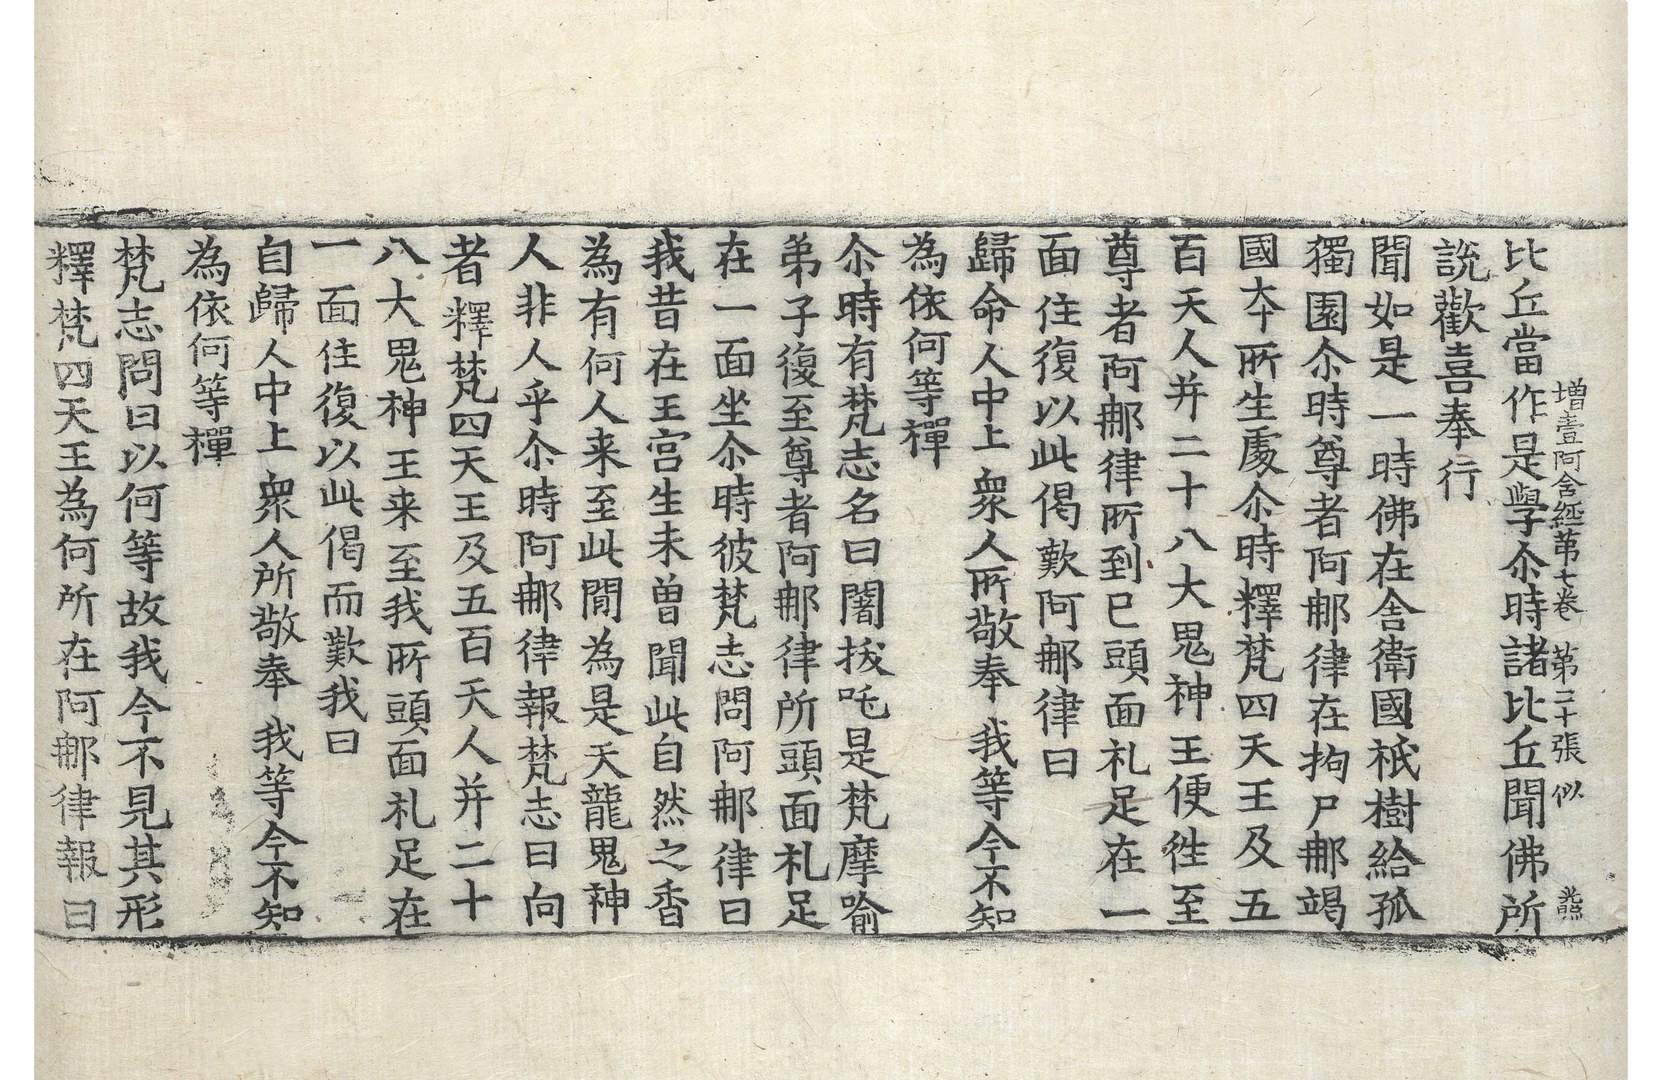 增壹阿含經第七卷 第二十張 似
比丘當作是學尒時諸比丘聞佛所
說歡喜奉行
聞如是一時佛在舍衛國祇樹給孤
獨園尒時尊者阿那律在拘尸那竭
國夲所生處尒時釋梵四天王及五
百天人并二十八大鬼神王便徃至
尊者阿那律所到已頭面礼足在一
面住復以此偈歎阿那律曰
歸命人中上 衆人所敬奉 我等今不知
為依何等禪
尒時有梵志名曰闍拔吒是梵摩喻
弟子復至尊者阿那律所頭面礼足
在一面坐尒時彼梵志問阿那律曰
我昔在王宮生未曽聞此自然之香
為有何人来至此閒為是天龍鬼神
人非人乎尒時阿那律報梵志曰向
者釋梵四天王及五百天人并二十
八大鬼神王来至我所頭面礼足在
一面住復以此偈而歎我曰
自歸人中上 衆人所敬奉 我等今不知
為依何等禪
梵志問曰以何等故我今不見其形
釋梵四天王為何所在阿那律報曰